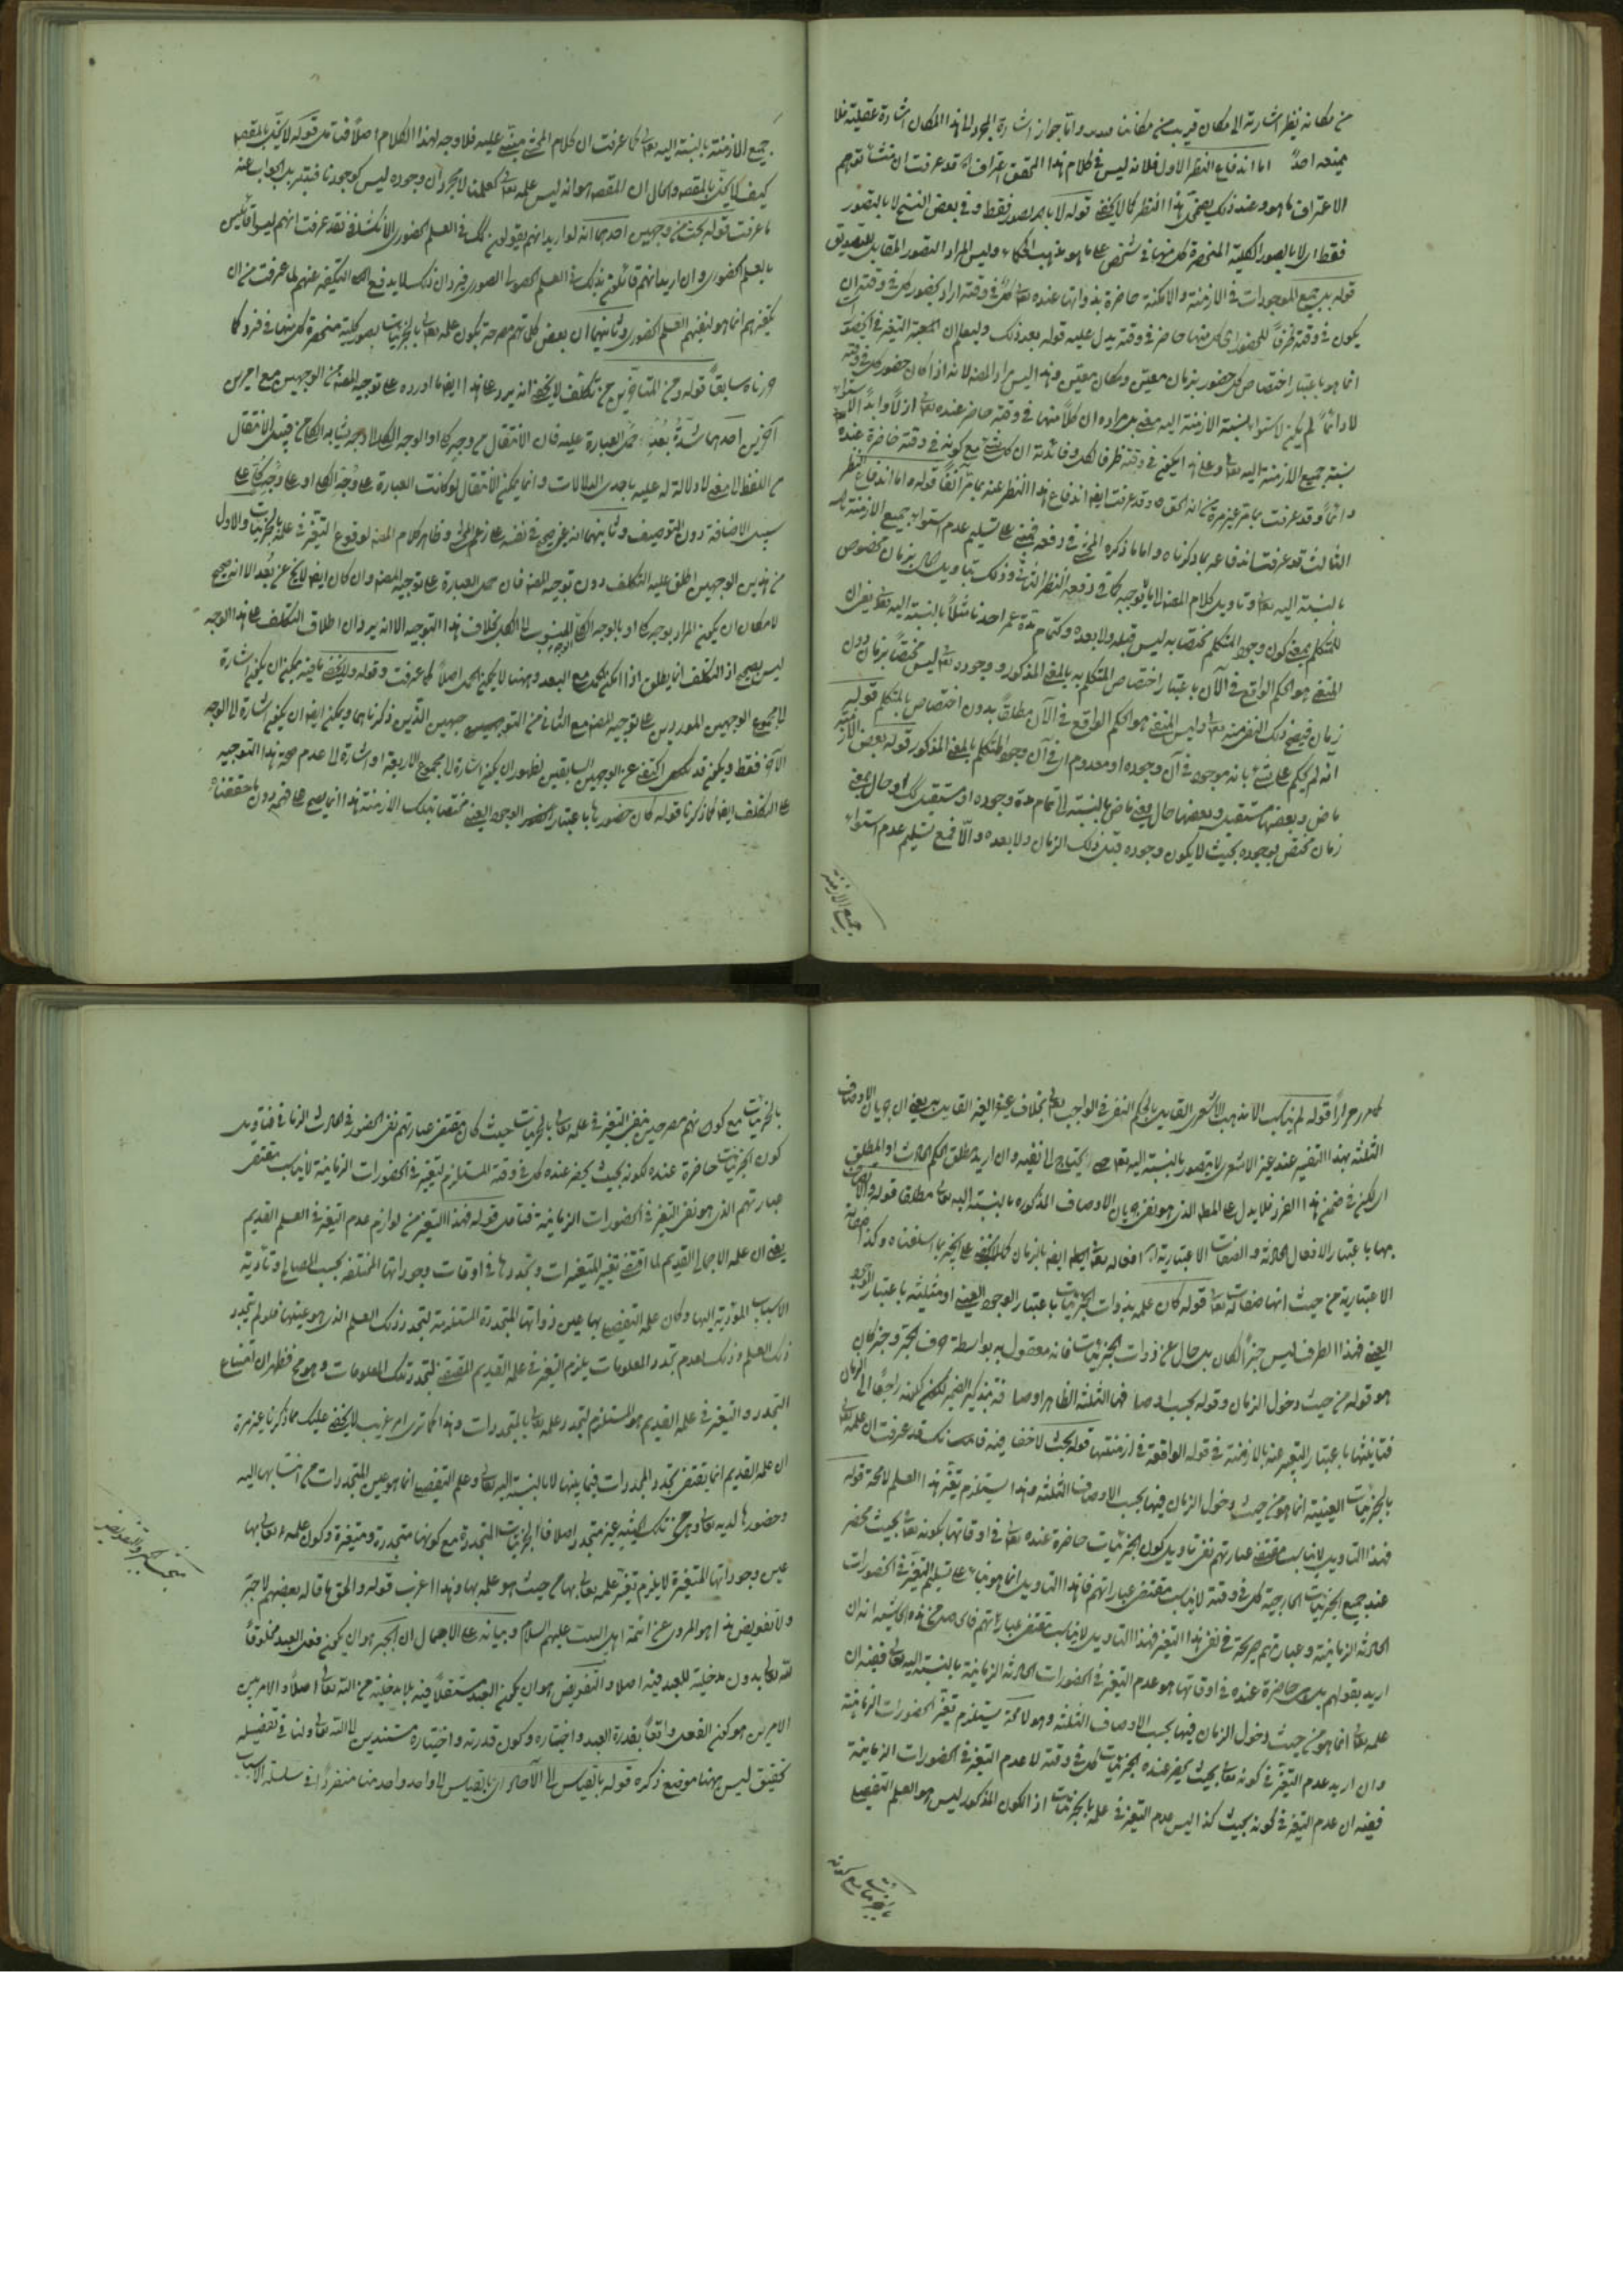 من مكانه نظر اشارته الى مكان قريب من مكاننا واما جواز اشارة المجرد الى هذا المكان اشارة عقلية فلا
يمنعه احد اما اندفاع النظر الاول فلانه ليس في كلام هذا المحقق اعتراف قد عرفت ان منشأ توهم
الاعتراف ما هو وعند ذلك يضمحل هذا النظر كما لا يخفى قوله لا بامر تصور فقط وفي بعض النسخ لا بالتصور
فقط اى لا بالصور الكلية المنحصرة كل منها في شخص على ما هو مذهب الحكماء وليس المراد التصور المقابل للتصديق
قوله بل جميع الموجودات في الازمنة والامكنة حاضرة بذواتها عنده تعالى كل في وقته اراد بحضور كل في وقته ان
يكون في وقته ظرفا للحضور اى كل منها حاضر في وقته يدل عليه قوله بعد ذلك وليعلم ان التغير في الحضور
انما هو باعتبار اختصاص كل حضور بزمان معين ومكان معين وهذا ليس مراد المصنف لانه اذا كان حضور كل في وقته
لا دائما لم يكن لاستواء نسبة الازمنة اليه معنى بل مراده ان كلا منها في وقته حاضر عنده تعالى ازلا وابدا لاستواء
نسبة جميع الازمنة اليه تعالى وعلى هذا يكون في وقته ظرفا لكل وفائدته ان كل شىء مع كونه في وقته حاضرة عنده
دائما وقد عرفت بما مر غير مرة من انه الحق وقد عرفت ايضا اندفاع هذا النظر عنه بما مر آنفا قوله واما اندفاع النظر
الثالث قد عرفت اندفاعه بما ذكرناه واما ما ذكره المحشى في دفعه فمبنى على تسليم عدم استواء جميع الازمنة
بالنسبة اليه تعالى وتاويل كلام المصنف الى ما يوجبه كما في دفعه النظر الثانى وذلك بتاويل حال بزمان مخصوص
للمتكلم بمعنى كون وجود المتكلم مختصا به ليس قبله ولا بعده وكتمام مدة عمر احدنا مثلا بالنسبة اليه تعالى يعنى ان
المنفى هو الحكم الواقع في الآن باعتبار اختصاص المتكلم به بالمعنى المذكور ووجوده تعالى ليس مختصا بزمان دون
زمان فيصح ذلك النفى منه تعالى وليس المنفى هو الحكم الواقع في الآن مطلقا بدون اختصاص بالمتكلم قوله
انه لم يحكم على شىء بانه موجود في آن وجوده او معدوم اى في آن وجود المتكلم بالمعنى المذكور قوله بعض الازمنة
ماض وبعضها مستقبل وبعضها حال يعنى ماض بالنسبة الى تمام مدة وجوده او مستقبل كذلك او حال بمعنى
زمان مختص بوجوده بحيث لا يكون وجوده قبل ذلك الزمان ولا بعده والا فمع تسليم عدم استواء
جميع الازمنة
جميع الازمنة بالنسبة اليه تعالى كما عرفت ان كلام المحشى مبنى عليه فلا وجه لهذا الكلام اصلا فتامل قوله لا يخل بالمقصود
كيف لا يخل بالمقصود والحال ان المقصود هو انه ليس علمه تعالى كعلمنا لا مجرد ان وجوده ليس كوجودنا فتدبر الجواب عنه
ما عرفت قوله بحث من وجهين احدهما انه لو اريد انهم يقولون بذلك في العلم الحضورى الانكشافى فقد عرفت انهم ليسوا قائلين
بالعلم الحضورى وان اريد انهم قائلون بذلك في العلم الحصولى الصورى فيرد ان ذلك لا يدفع التكفير عنهم لما عرفت من ان
تكفيرهم انما هو لنفيهم العلم الحضورى وثانيهما ان بعض كلماتهم مصرحة بكون علمه تعالى بالجزئيات بصور كلية منحصرة كل منها في فرد كما
حررناه سابقا قوله ومن المتاخرين من تكلف لا يخفى انه يرد على هذا ايضا ما اورده على توجيه المصنف من الوجهين مع امرين
آخرين احدهما شدة بعد حمل العبارة عليه فان الانتقال من وجه كل او الوجه الكلى الى وجه يشابه الكل من قبيل الانتقال
من اللفظ الى معنى لا دلالة له عليه باحدى الدلالات وانما يمكن الانتقال لو كانت العبارة على وجه الكل او على وجه كل على
سبيل الاضافة دون التوصيف وثانيهما انه غير صحيح في نفسه على زعم المحشى وظاهر كلام المصنف لوقوع التغير في علمه بالجزئيات والاول
من هذين الوجهين اطلق عليه التكلف دون توجيه المصنف فان حمل العبارة على توجيه المصنف وان كان ايضا لا يخ عن بعد الا انه صحيح
لامكان ان يكون المراد بوجه كل او بالوجه الكلى الوجه المنسوب الى الكل بخلاف هذا التوجيه الا انه يرد ان اطلاق التكلف على هذا الوجه
ليس بصحيح اذ التكلف انما يطلق اذا امكن الحمل مع البعد وههنا لا يمكن الحمل اصلا كما عرفت وقوله ولا يخفى ما فيه يمكن ان يكون اشارة
الى مجموع الوجهين الموردين على توجيه المصنف مع الثانى من الوجهين الذين ذكرناهما ويمكن ايضا ان يكون اشارة الى الوجه
الآخر فقط ويكون قد اكتفى عن الوجهين السابقين لظهورهما ان يكون اشارة الى مجموع الاربعة او اشارة الى عدم صحة هذا التوجيه
على التكلف ايضا كما ذكرنا قوله كان حضورها باعتبار الوجود العينى مختصا بتلك الازمنة هذا انما يصح على فهمه دون ما حققناه
قوله لم يناسب الا مذهب الاشعرى القايل بالحكم النفسى في الواجب تعالى بخلاف غيره الغير القايل به يعنى ان جريان الاوصاف
الثلثة بهذا التفسير عند غير الاشعرى لا يتصور بالنسبة اليه تعالى حتى يحتاج الى نفيه وان اريد مطلق الحكم الحادث او المطلق
لكن في ضمن هذا الفرد فلا يدل على المط الذى هو نفى جريان الاوصاف المذكورة بالنسبة اليه تعالى مطلقا قوله والاتصاف
بها باعتبار الافعال الحادثة والصفات الاعتبارية افعاله تعالى ايضا بالزمان كما لا يخفى على الخبير بما اسلفناه وكذا صفاته
الاعتبارية من حيث انها صفاته تعالى قوله كان علمه بذوات الجزئيات باعتبار الوجود العينى او مثلية باعتبار الوجود
العينى فهذا الظرف ليس خبرا لكان بل حال عن ذوات الجزئيات فانه معقول به بواسطة حرف الجر وخبر كان
هو قوله من حيث دخول الزمان وقوله بحسب اوصافها الثلثة الظاهر اوصافه بتذكير الضمير لكونه راجعا الى الزمان
فتانيثها باعتبار التعبير عنه بالازمنة في قوله الواقعة في ازمنتها قوله بحث لا خفاء فيه فانك قد عرفت ان علمه تعالى
بالجزئيات العينية انما هو من حيث دخول الزمان فيها بحسب الاوصاف الثلثة وهذا يستلزم تغير هذا العلم لا محة قوله
فهذا التاويل لا يناسب مقتضى عبارتهم نفى تاويل كون الجزئيات حاضرة عنده تعالى في اوقاتها بكونه تعالى بحيث يحضر
عنده جميع الجزئيات الخارجية كل في وقته لا يناسب مقتضى عباراتهم فان هذا التاويل انما هو بناء على تسليم التغير في الحضورات
الحادثة الزمانية وعبارتهم صريحة في نفى هذا التغير فهذا التاويل لا يناسب مقتضى عباراتهم فالحاصل من هذه الحاشية انه ان
اريد بقولهم بل هى حاضرة عنده في اوقاتها هو عدم التغير في الحضورات الحادثة الزمانية بالنسبة اليه تعالى ففيه ان
علمه تعالى انما هو من حيث دخول الزمان فيها بحسب الاوصاف الثلثة وهو لا محة يستلزم تغير الحضورات الزمانية
وان اريد عدم التغير في كونه تعالى بحيث يحضر عنده الجزئيات كل في وقته لا عدم التغير في الحضورات الزمانية
ففيه ان عدم التغير في كونه بحيث كذا ليس عدم التغير في علمه بالجزئيات اذ الكون المذكور ليس هو العلم التفصيلى
بالجزئيات مع كونه
بالجزئيات مع كونهم مصرحين بنفى التغير في علمه تعالى بالجزئيات حيث كان مقتضى عبارتهم نفى الحضور في الحادث الزمانى فتاويل
كون الجزئيات حاضرة عنده لكونه بحيث يحضر عنده كل في وقته المستلزم لتغير في الحضورات الزمانية لا يناسب مقتضى
عبارتهم الذى هو نفى التغير في الحضورات الزمانية فتامل قوله فهذا التغير من لوازم عدم التغير في العلم القديم
يعنى ان علمه الاجمالى القديم لما اقتضى تغير المتغيرات وتجددها في اوقات وجوداتها المختلفة بحسب المصالح وتأدية
الاسباب المؤدية اليها وكان علمه التفصيلى بها عين ذواتها المتجددة المستلزمة لتجدد ذلك العلم الذى هو عينها فلو لم يتجدد
ذلك العلم وذلك لعدم تجدد المعلومات يلزم التغير في علمه القديم المقتضى لتجدد تلك المعلومات وهو مح فظهر ان امتناع
التجدد والتغير في علمه القديم هو المستلزم لتجدد علمه تعالى بالمتجددات وهذا كما ترى امر غريب لا يخفى عليك مما ذكرنا غير مرة
ان علمه القديم انما يقتضى تجدد المتجددات فيما بينها لا بالنسبة اليه تعالى وعلمه التفصيلى انما هو عين المتجددات من حيث انتسابها اليه
وحضورها لديه تعالى وهى من تلك الحيثية غير متجددة اصلا فالجزئيات المتجددة مع كونها متجددة ومتغيرة وكون علمه تعالى بها
عين وجوداتها المتغيرة لا يلزم تغير علمه تعالى بها من حيث هو علمه بها وهذا اغرب قوله والحق ما قاله بعضهم لا جبر
ولا تفويض هذا هو المروى عن ائمة اهل البيت عليهم السلام وبيانه على الاجمال ان الجبر هو ان يكون فعل العبد مخلوقا
لله تعالى بدون مدخلية للعبد فيه اصلا والتفويض هو ان يكون العبد مستقلا فيه بلا مدخلية من الله تعالى اصلا والامر بين
الامرين هو كون الفعل واقعا بقدرة العبد واختياره وكون قدرته واختياره مستندين الى الله تعالى ولنا في تفصيله
تحقيق ليس ههنا موضع ذكره قوله بالقياس الى الآحاد اى بالقياس الى واحد واحد منها منفردا في سلسلة الاسباب